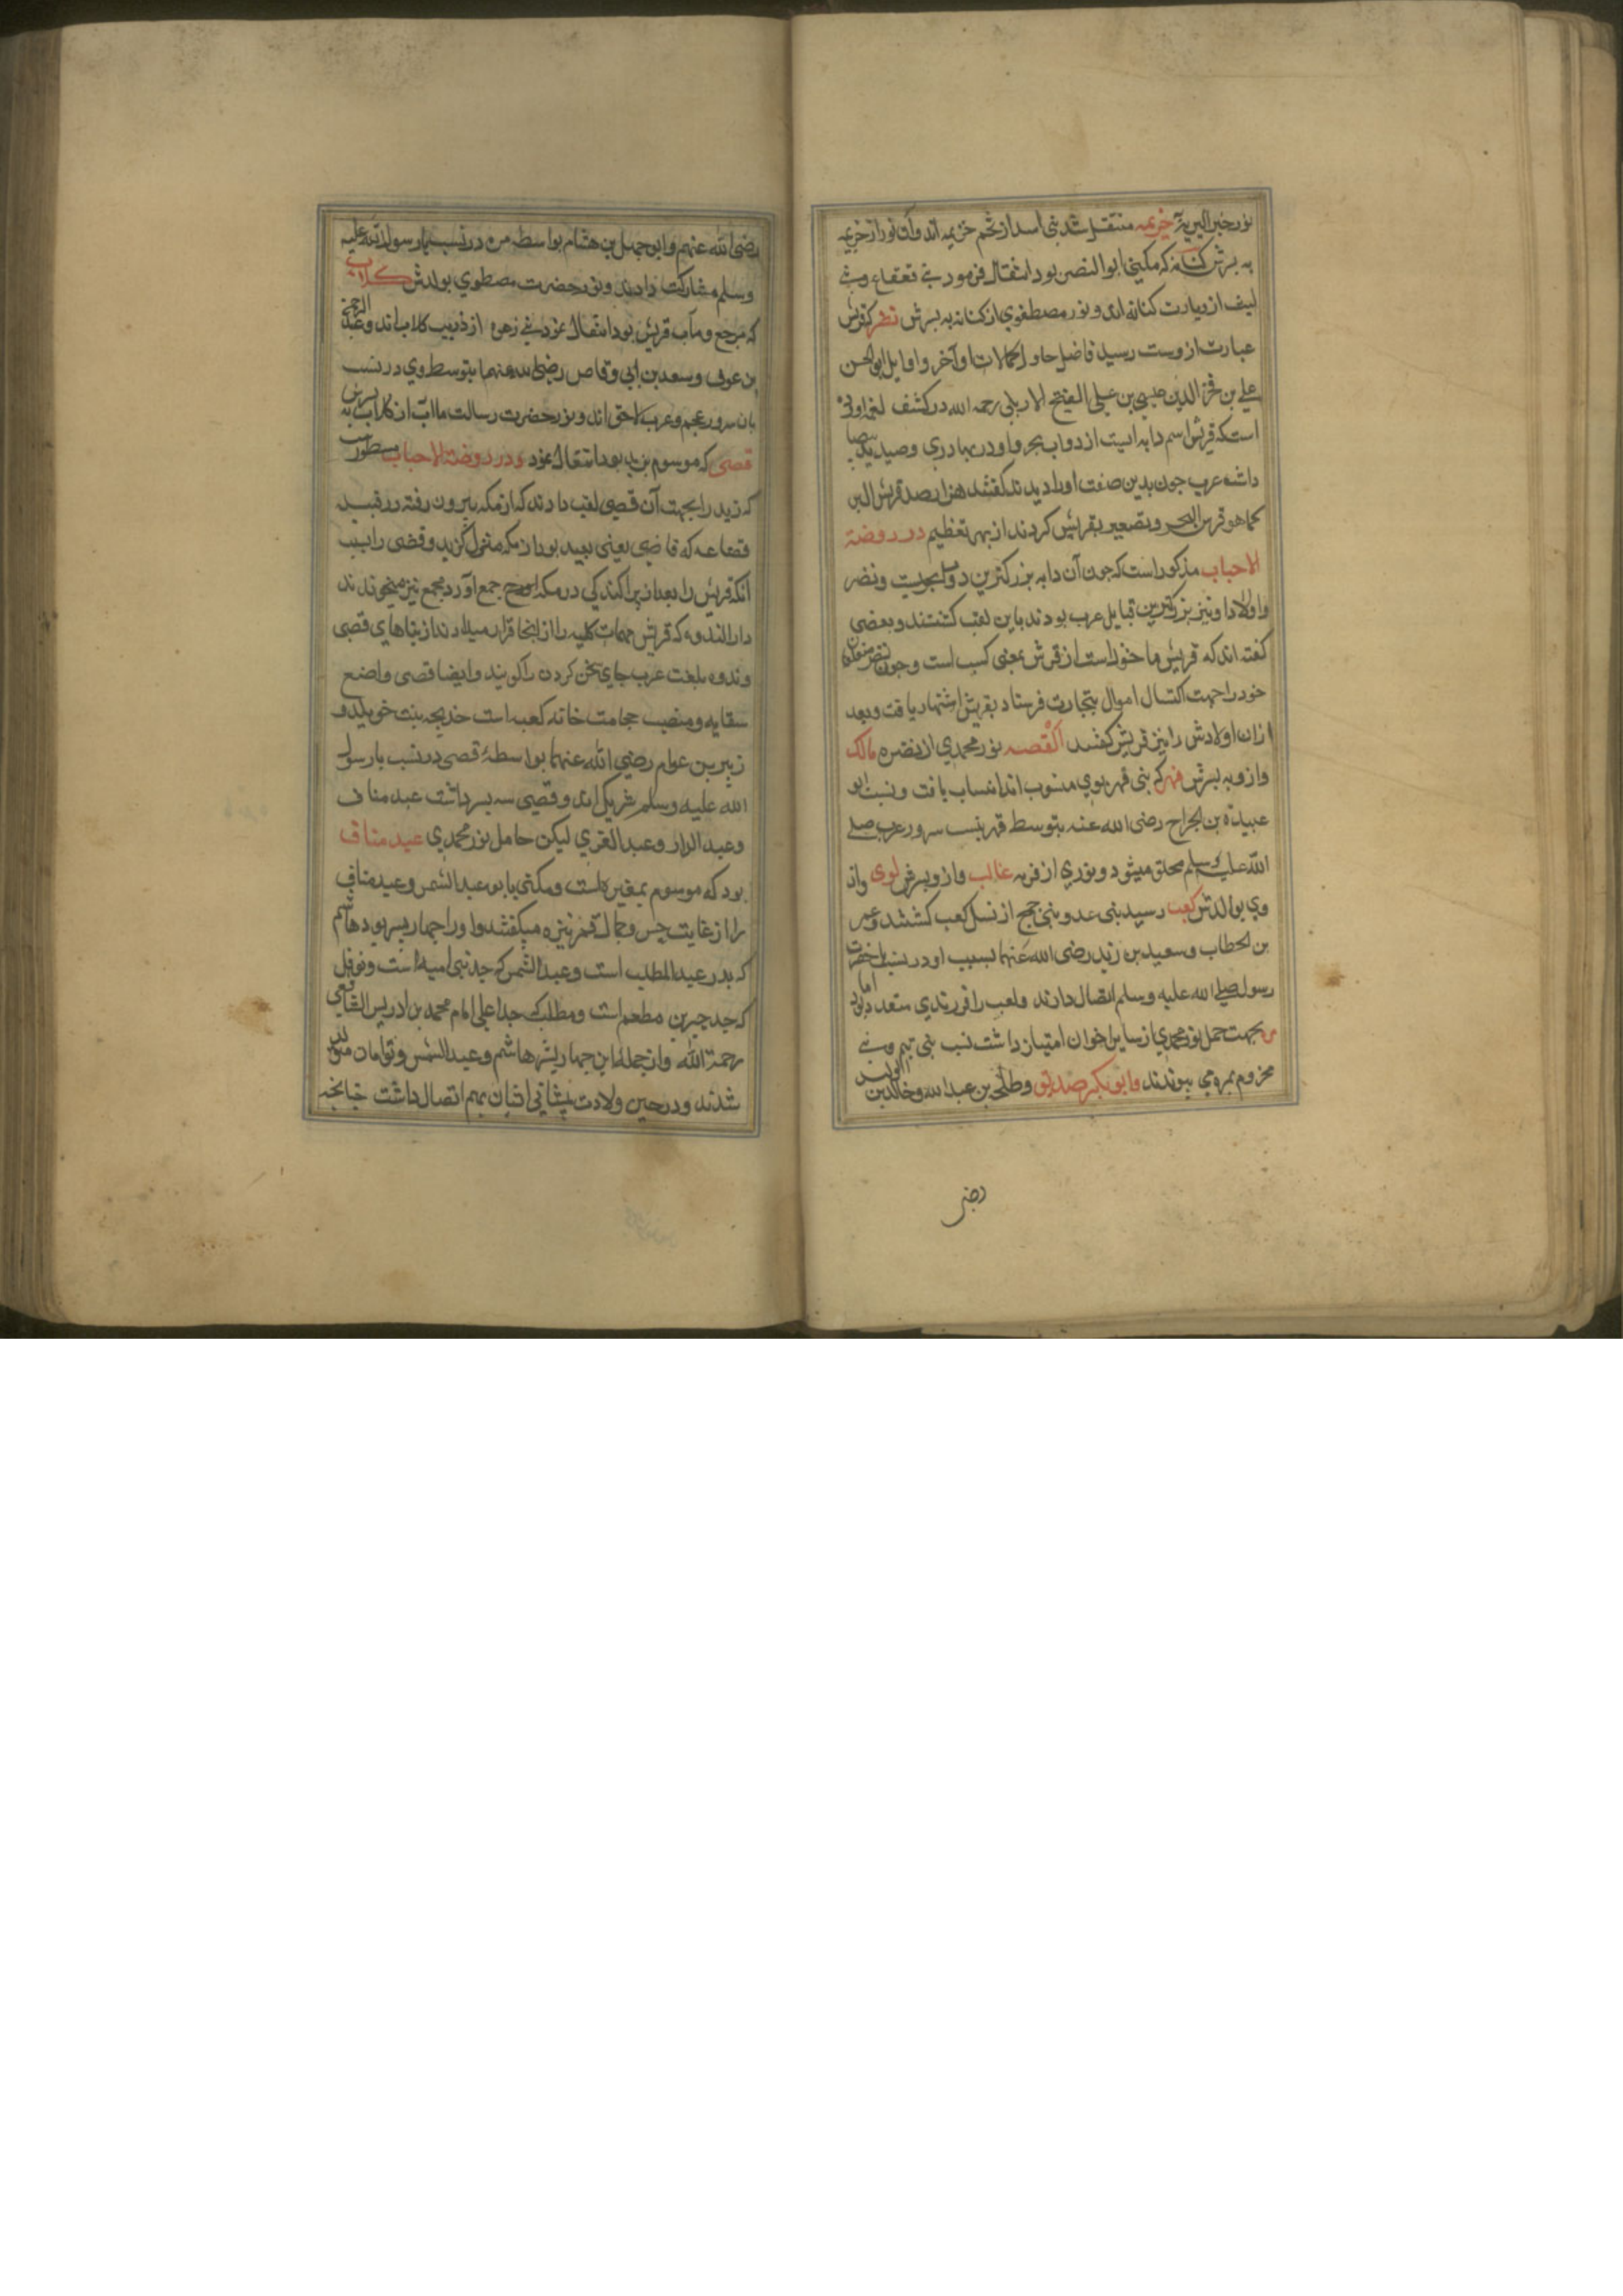 نور خیر البریة خزیمه منتقل شد بنی اسد از تخم خزیمه اند و آن نور از خزیمه
به پسرش کنانه که مکنی ابوالنصر بود انتقال فرمود بنی قعقاع و بنی
لیف از و یارت کنانه اند و نور مصطفوی از کنانه به پسرش نضر که قریش
عبارت ازوست رسید فاضل حاوی کمالات اوآخر و اوایل ابو الحسن
علی بن فخر الدین عیسی بن علی الفتح الاربلی رحمه الله در کشف الغمه اورده
است که قریش اسم دابه ایست از دواب بحر و او در بهادری و صید ید بیضا
داشه عرب جون بدین صفت او را دیدند گفتند هنا رصد قریش البن
کما هو قرش البحر و تصغیر بقریش کردند از بهر تعظیم در روضة
الاحباب مذکور است که جون آن دابه بزرکترین دواب بحریست و نضر
و اولاد او نیز بزرکترین قبایل عرب بودند باین لقب کشتند و بعضی
کفته اند که قریش ماخوذ است از قرش بمعنی کسب است و جون نضر متعلقان
خود را جهت اکتسال اموال بتجارت فرستاد بقریش اشتهار یافت و بعد
ازان اولادش را نیز قریش کفتند القصه نور محمدی از نضر به مالک
و ازو به پسرش فهر که بنی فهر بوی منسوب اند انتساب یافت و نسبت ابو
عبیدة بن الجراح رضی الله عنه بتوسط فهر بنسب سرور عرب صلی
الله علیه وسلم محلق میشود و نوری از فهر به غالب و ازو پسرش لوی و از
وی بوالدش کعب رسید بنی عدو بنی جمح از نسل کعب کشتند و عمر
بن الخطاب و سعید بن زید رضی الله عنهما بسبب او در نسب باحضرت
رسول صلی الله علیه وسلم اتصال دارند و کعب را فرزندی متعدد بود اما
مره بجهت حمل نور محمدی از سایر اخوان امتیاز داشت نسب بنی تیم و بنی
مخزوم بمره می پیوندند و ابوبکر صدیق و طلحه بن عبدالله و خالد بن الولید
رضی
رضی الله عنهم و ابو جهل بن هشام بواسطه مره در نسب با رسول الله علیه
وسلم مشارکت دادند و نور حضرت مصطوی بولدش کلاب
که مرجع و مآب قریش بود انتقال نمود بنی زهره از ذریت کلاب اند و عبد الرحمن
بن عوف و سعد بن ابی وقاص رضی الله عنهما بتوسط وی در نسب
بان سرور عجم و عرب لاحق اند و نور حضرت رسالت مااب از کلاب به پسرش
قصی که موسوم بزید بود انتقال نمود و در روضة الاحباب مسطور است
که زید را بجهت آن قصی لقب دادند که از مکه بیرون رفته در قبیله
قضاعه که قاضی یعنی بعید بود از مکه منزل گزید و قصی را بسبب
انکه قریش را بعد از پراکندکی در مکه جمع آورد مجمع نیز میخوندند
دار الندوه که قریش مهمات کلیه را از اینجا قرار میدادند از بناهای قصی
و ندوه بلغت عرب جای سخن کردن را کویند و ایضا قصی واضع
سقایه و منصب حجامت خانه کعبه است خدیجه بنت خویلد و
زبیر بن عوام رضی الله عنهما بواسطهٔ قصی در نسب با رسول
الله علیه وسلم شریک اند و قصی سه پسر داشت عبد مناف
و عبد الدار و عبد العزی لیکن حامل نور محمدی عبد مناف
بود که موسوم بمغیره است و مکنی بابو عبد الشمس و عبد مناف
را از غایت حسن و جمال قمر نیز میکفتند و او را جهار پسر بود هاشم
که پدر عبد المطلب است و عبد الشمس که جد بنی امیه است و نوفل
که جد جبیر بن مطعم است و مطلب که جد اعلی امام محمد بن ادریس الشافعی
رحمة الله و از جمله این جهار پسر هاشم و عبد الشمس و توامان متولد
شدند و در حین ولادت پیشانی اشان بهم اتصال داشت جنانجه